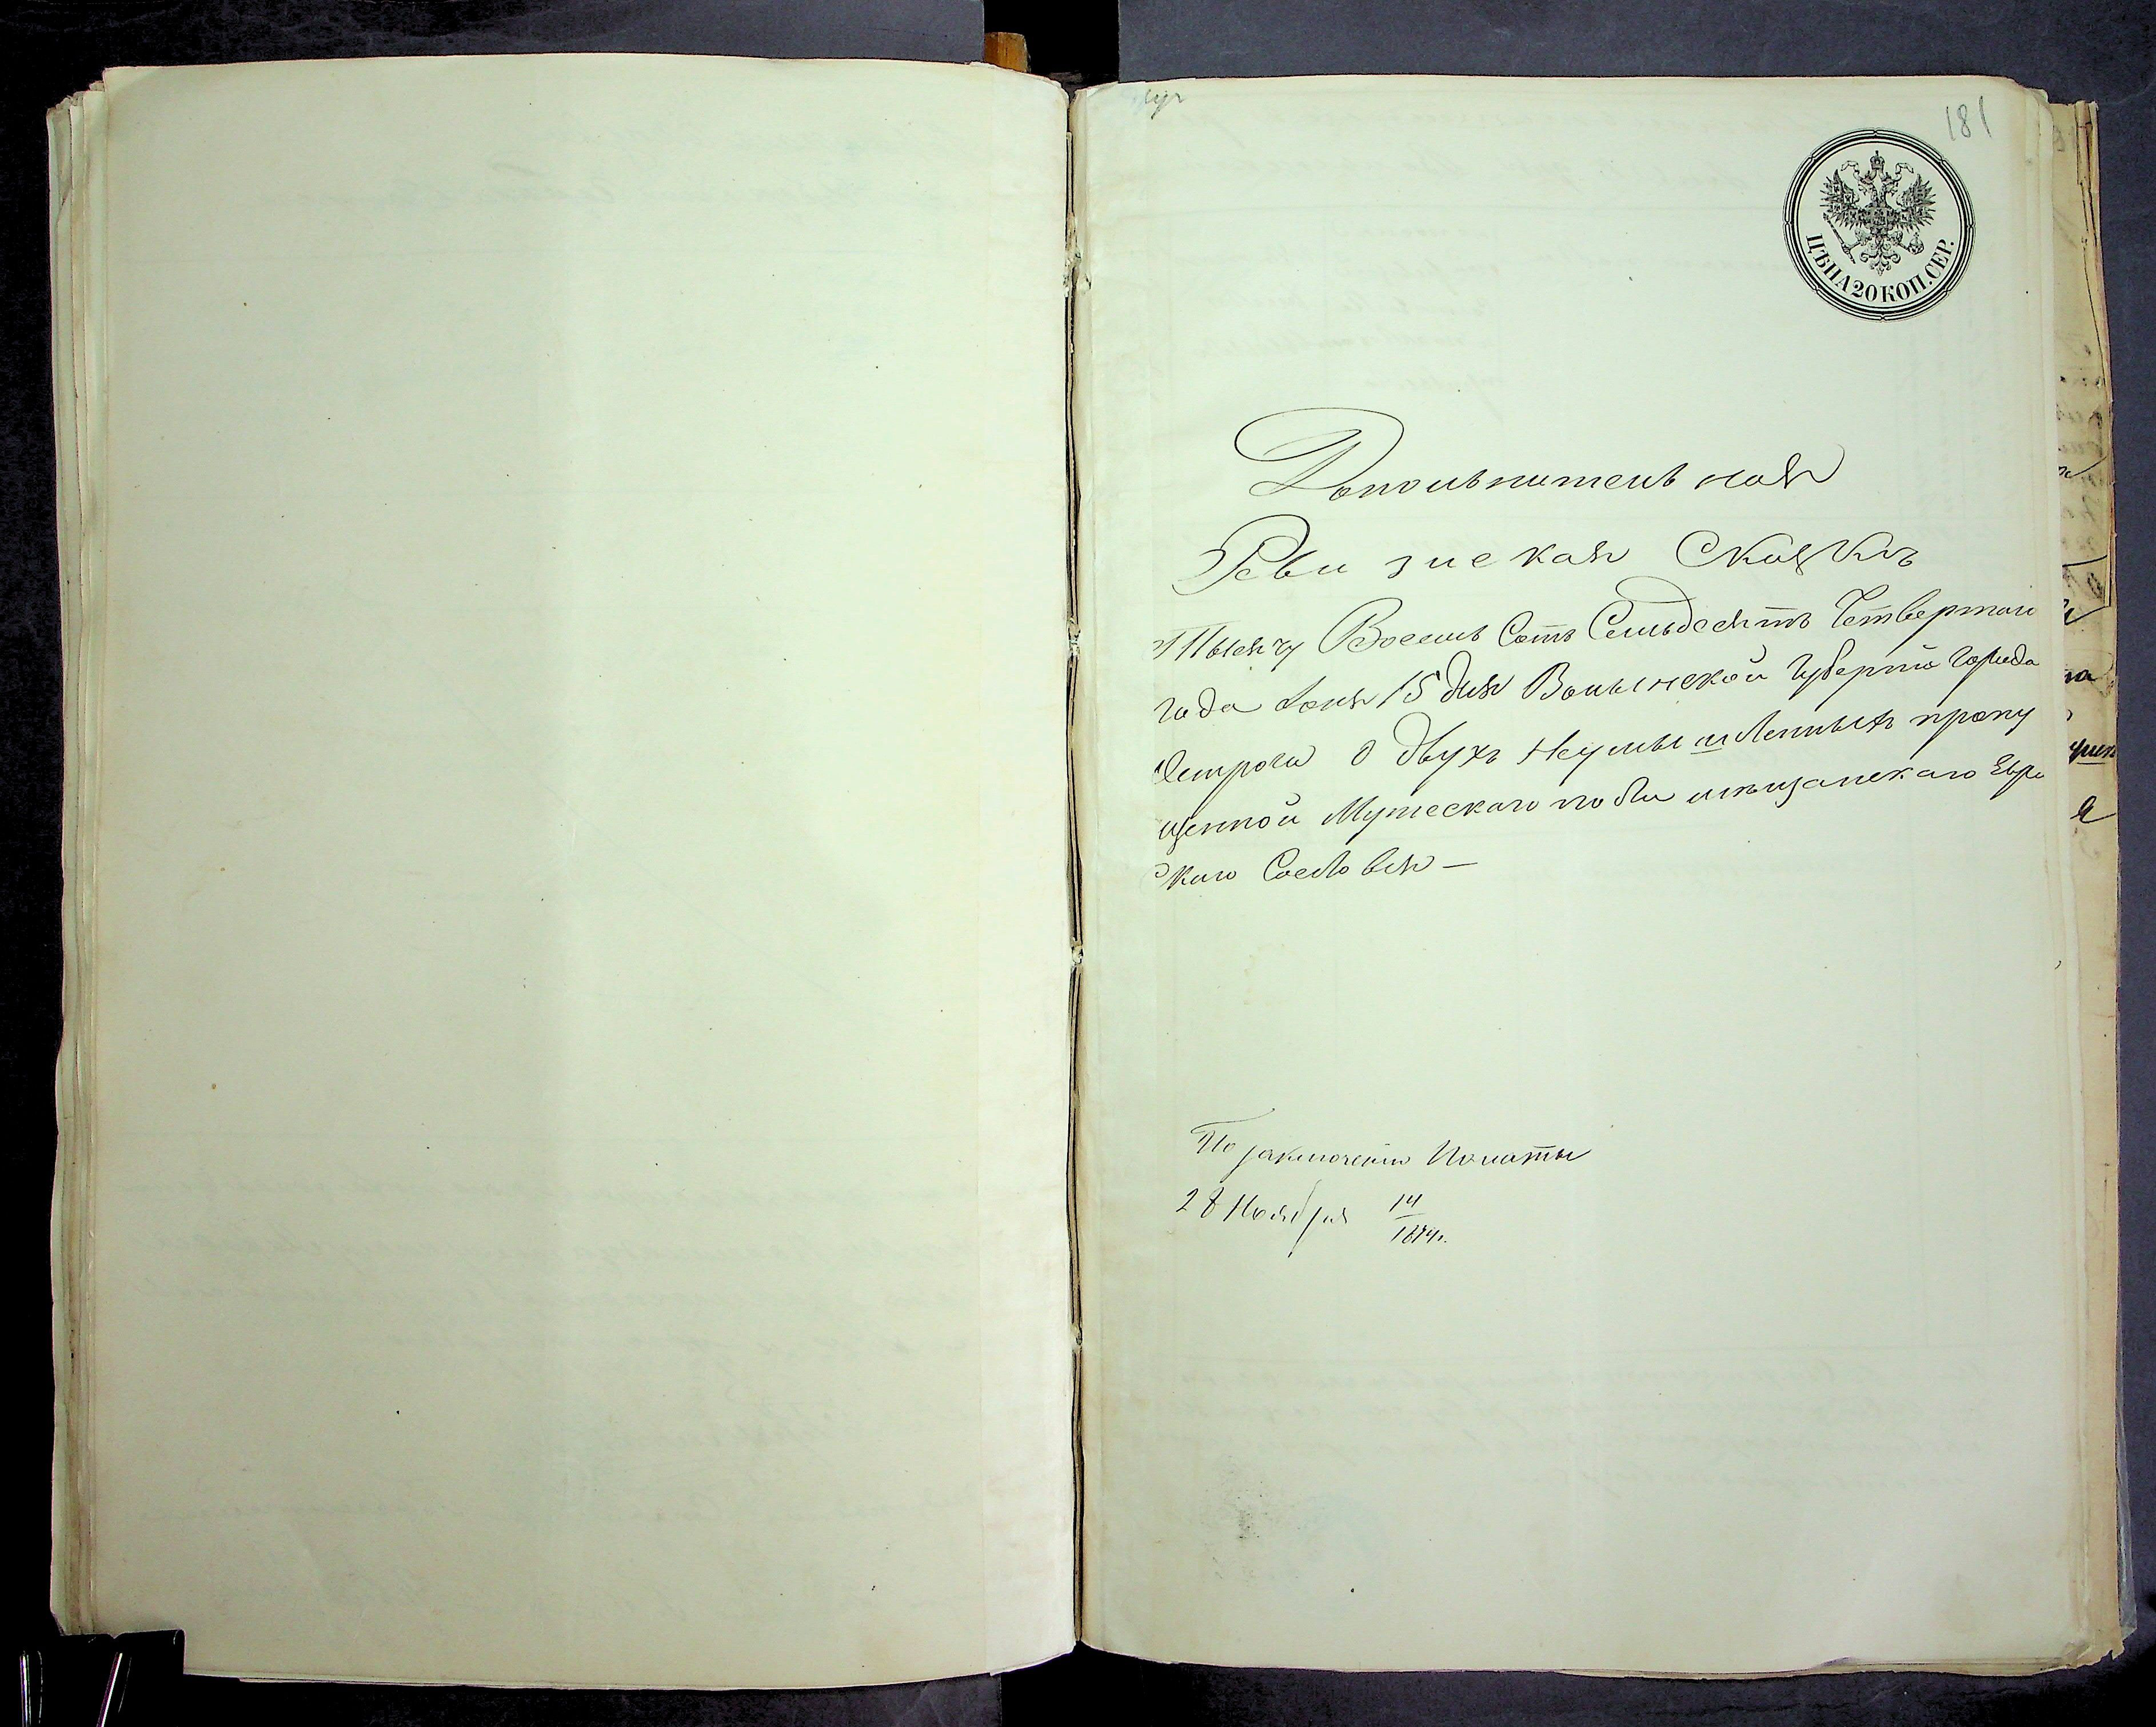 181
ЦѢНА 20 КОП. СЕР.
Допольнительная
Ревизская Сказка
Тысячу Восемь Сотъ Семьдесятъ Четвертаго
года Іюня 15 дня Волынской Губерніи Города
Острога о двухъ Неумышленныхъ пропу
щенной Мужескаго пола мѣщанскаго Евре
скаго Сословія —
По заключенію Полаты
28 Ноября 14
1874г.